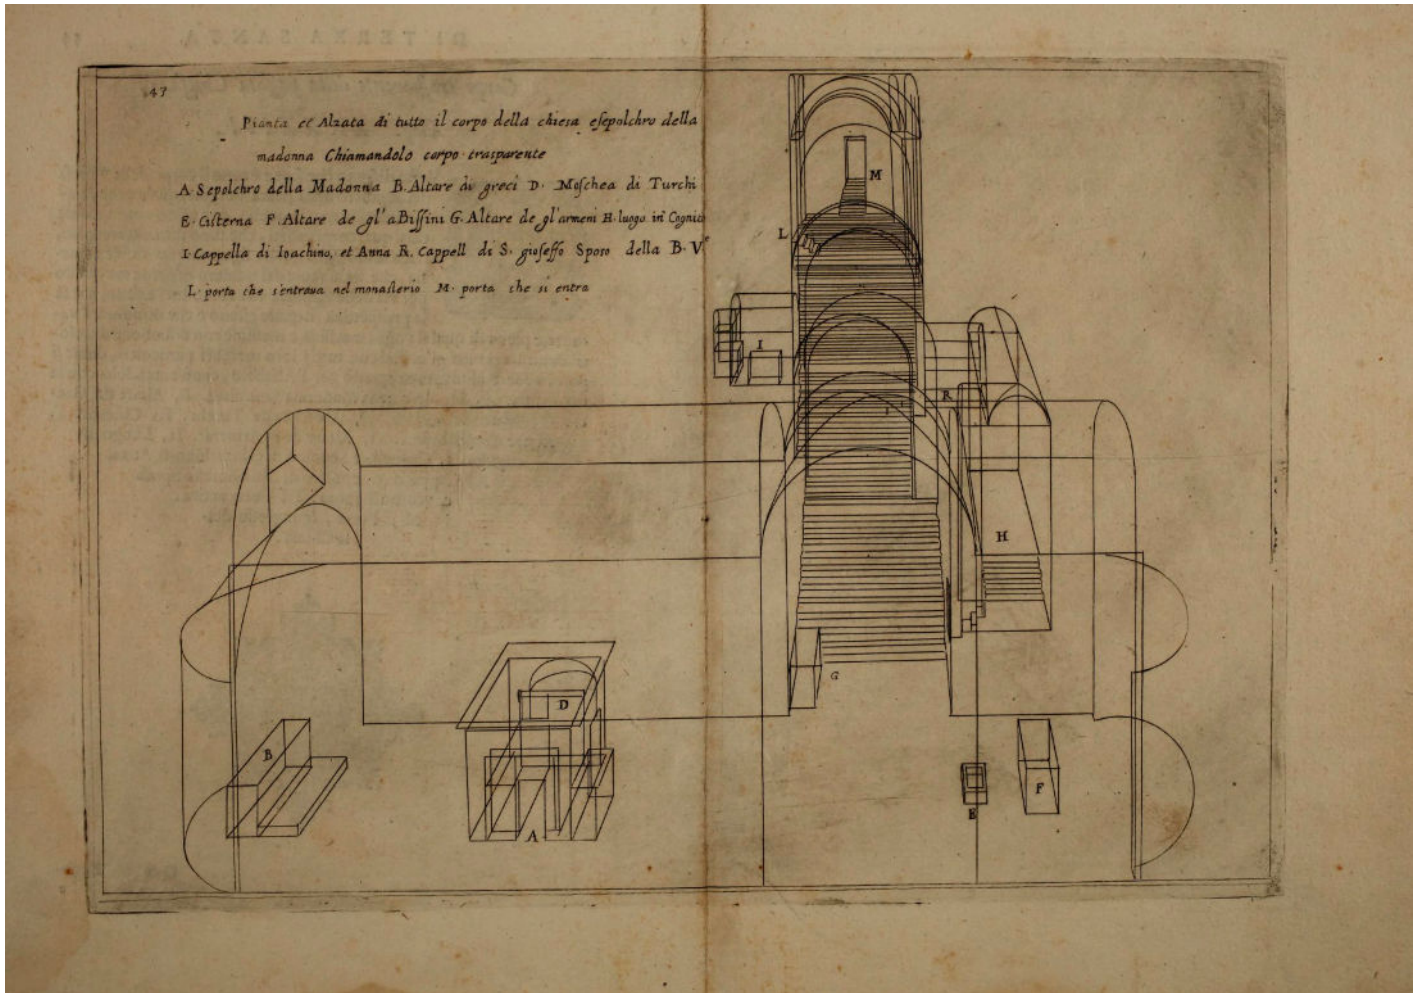 43
Pianta et Alzata di tutto il corpo della chiesa esepolchro della
madonna Chiamandolo corpo trasparente
A. Sepolchro della Madonna B. Altare di greci D. Moschea di Turchi
E. Cisterna F. Altare de gl'aBissini G. Altare de gl'armeni H. luogo in Cognito
I. Cappella di Ioachino, et Anna R. Cappell di S. gioseffo Sposo della B. V.
L. porta che s'entraua nel monasterio M. porta che si entra
M
L
I
R
H
G
D
B
A
E
F